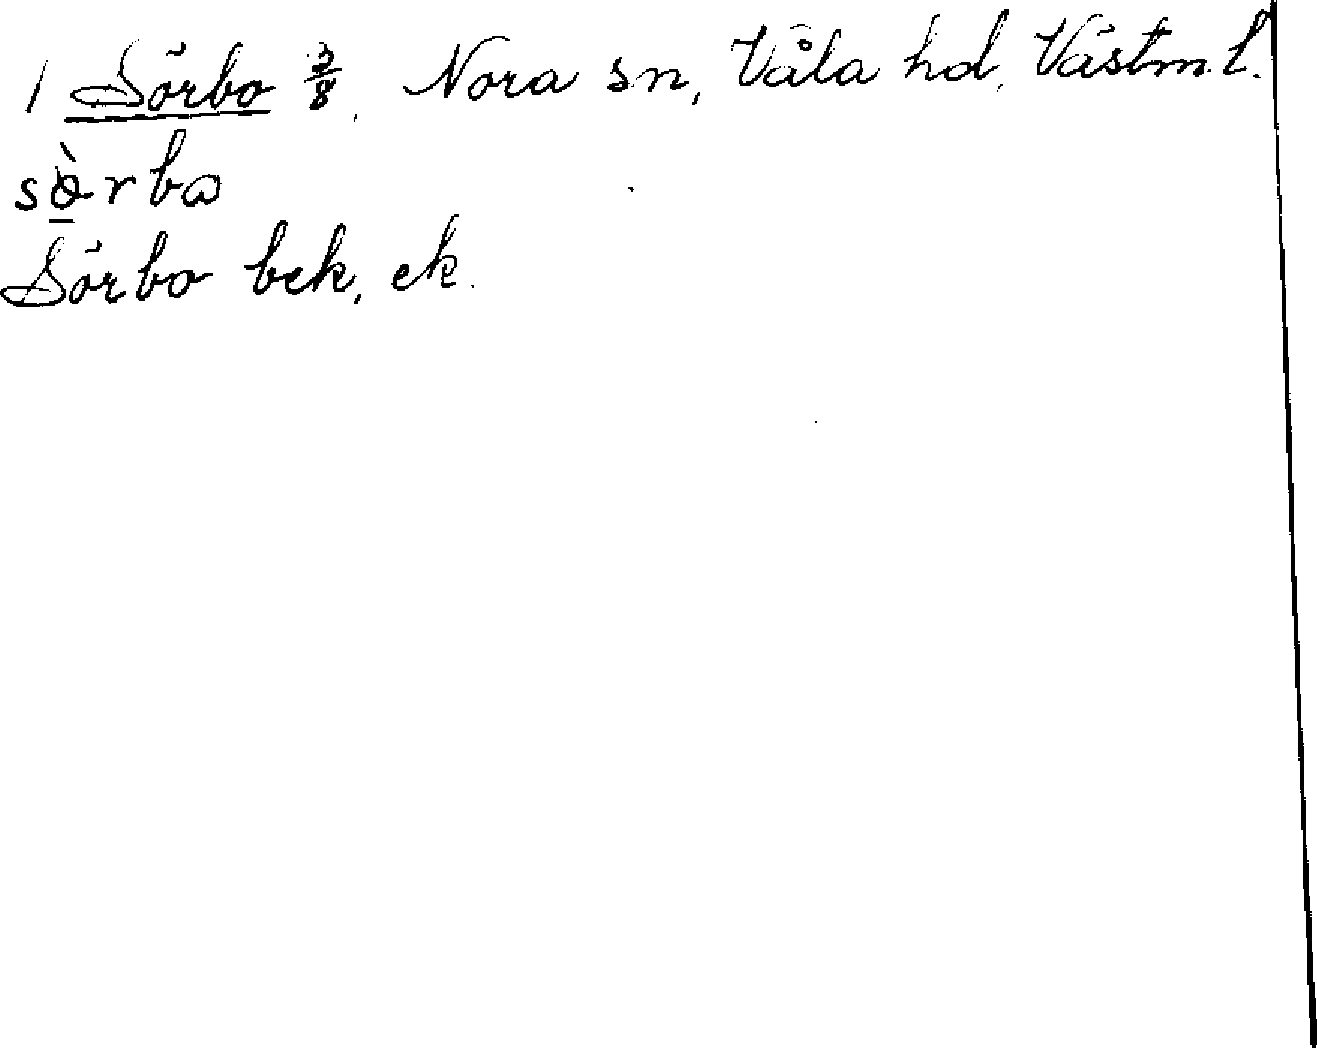 1 Sörbo 3/8, Nora sn, Våla hd, Västm. l.
sö̀rbω
Sörbo bek, ek.